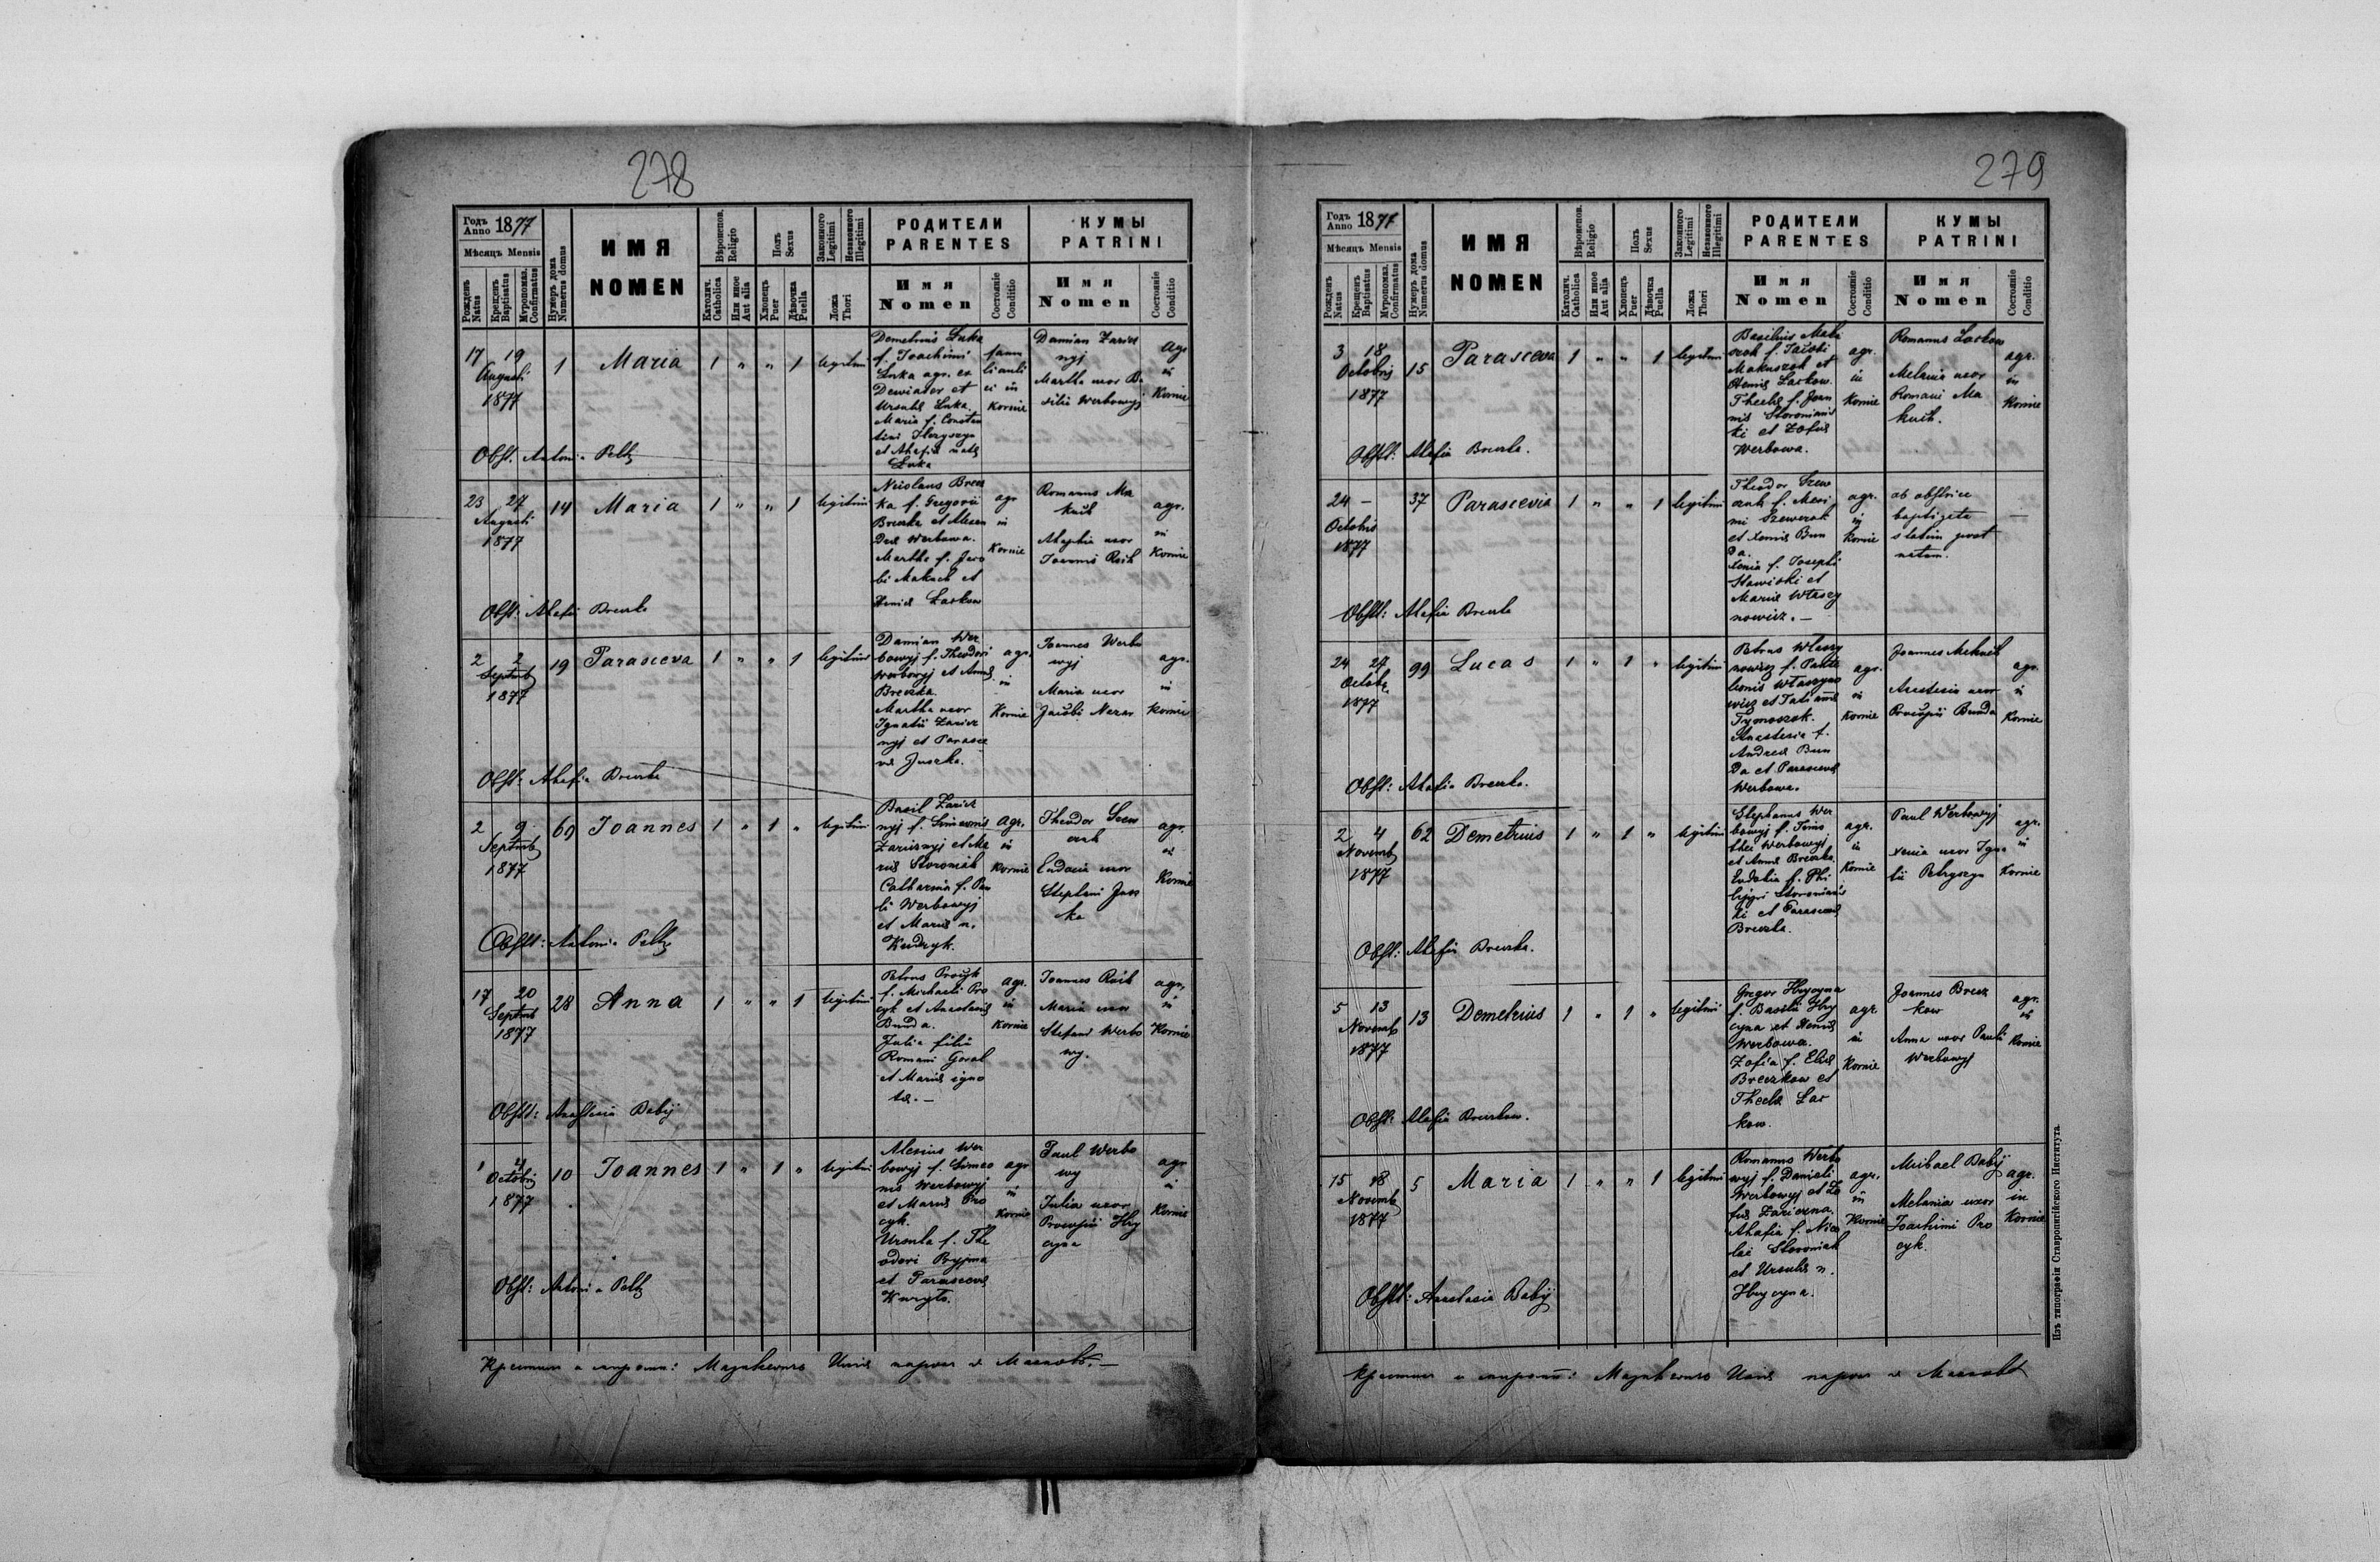 278
Годъ Anno 1877
Мѣсяцъ Mensis
Рожденъ Natus
Крещенъ Baptisatus
Мѵропомаз. Confirmatus
Нумеръ дома Numerus domus
ИМЯ NOMEN
Вѣроиспов. Religio
Католич. Catholica
Или иное Aut alia
Полъ Sexus
Хлопецъ Puer
Дѣвочка Puella
Законного Legitimi
Незаконного Illegitimi
Ложа Thori
РОДИТЕЛИ PARENTES
Имя Nomen
Состояніе Conditio
КУМЫ PATRINI
Имя Nomen
Состояніе Conditio
17 19
Augusti
1877
1
Maria
1 " " 1
legitimi
Demetrius Luka
f. Joachimi
Luka agr. ex
Dewiater et
Ursula Luka.
Maria f. Constan
tini Hryszyn
et Ahafia nata
Luka
in
Kornie
Damian Zaricz
nyj
Martha uxor Ba
silii Werbowyj
Agr
in
Kornie
Obst. Antonia Peltz
23 27
Augusti
1877
14
Maria
1 " " 1
legitimi
Nicolaus Brecz
ka f. Gregorii
Breczka et Alexan
dra Werbowa.
Martha f. Jaco
bi Makuch et
Xenia Laskow
agr
in
Kornie
Romanus Ma
kuch
Ahaphia uxor
Joannis Roik
agr.
in
Kornie
Obst: Ahafia Breczka
2 2
Septemb
1877
19
Parasceva
1 " " 1
legitimi
Damian Wer
bowyj f. Theodori
Werbowyj et Anna
Breczka.
Martha uxor
Ignatii Zaricz
nyj et Parasce
va Juszka.
agr.
in
Kornie
Joannes Werbo
wyj
Maria uxor
Jacobi Nazar
agr.
in
Kornie
Obst: Ahafia Breczka
2 9
Septemb
1877
69
Joannes
1 " 1 "
legitimi
Basil Zaricz
nyj f. Simeonis
Zaricznyj et Ma
ria Storoniak
Catharina f. Pau
li Werbowyj
et Maria n.
Kudryk.
Agr.
in
Kornie
Theodor Szew
czuk
Eudocia uxor
Stephani Jusz
ka
agr.
in
Kornie
Obst: Antonia Peltz
17 20
Septemb
1877
28
Anna
1 " " 1
legitimi
Petrus Procyk
f. Michaeli Pro
cyk et Anastasia
Bunda.
Julia filia
Romani Goral
et Maria igno
ta. —
agr.
in
Kornie
Joannes Roik
Maria uxor
Stefani Werbo
wy.
agr.
in
Kornie
Obst: Anastasia Babij
1 4
Octobris
1877
10
Joannes
1 " 1 "
legitimi
Alexius Wer
bowyj f. Simeo
nis Werbowyj
et Maria Pro
cyk.
Ursula f. The
odori Pryjma
et Parasceva
Kuryło.
agr
in
Kornie
Paul Werbo
wy
Julia uxor
Procopii Hry
cyna
agr
in
Kornie
Obst: Antonia Peltz
279
Годъ Anno 1877
Мѣсяцъ Mensis
Рожденъ Natus
Крещенъ Baptisatus
Мѵропомаз. Confirmatus
Нумеръ дома Numerus domus
ИМЯ NOMEN
Вѣроиспов. Religio
Католич. Catholica
Или иное Aut alia
Полъ Sexus
Хлопецъ Puer
Дѣвочка Puella
Законного Legitimi
Незаконного Illegitimi
Ложа Thori
РОДИТЕЛИ PARENTES
Имя Nomen
Состояніе Conditio
КУМЫ PATRINI
Имя Nomen
Состояніе Conditio
3 18
Octobris
1877
15
Parasceva
1 " " 1
legitimi
Basilius
f. Jacobi
et
Xenia Laskow.
Thecla f. Joan
nis Storonians
ki et Zofia
Werbowa.
agr.
in
Kornie
Romanus Laskow
Melania uxor
Romani Ma
kuch.
agr.
in
Kornie
Obst: Ahafia Breczka.
24 —
Octobris
1877
37
Parascevia
1 " " 1
legitimi
Theodor Szew
czuk f. Maxi
mi
et Xenia Bun
da.
Xenia f. Josephi
Stawiski et
Maria Własy
nowicz. —
agr.
in
Kornie
ab obstrice
baptizata
statim post
natum.
—
Obst: Ahafia Breczka
24 27
Octobr.
1877
99
Lucas
1 " 1 "
legitimi
Petrus Własy
nowicz f. Pante
leonis Własyno
wicz et Tatianna
Tymoszok.
Anastasia f.
Andrea Bun
da et Parasceva
Werbowa.
agr.
in
Kornie
Joannes Makuch
Anastasia uxor
Procopii Bunda
agr.
in
Kornie
Obst: Ahafia Breczka.
2 4
Novemb
1877
62
Demetrius
1 " 1 "
legitimi
Stephanus Wer
bowyj f. Timo
thei Werbowyj
et Anna Breczka.
Eudokia f. Phi
lippi Storonians
ki et Parasceva
Breczka.
agr.
in
Kornie
Paul Werbowyj
Xenia uxor Igna
tii Petryszyn
agr.
in
Kornie
Obst: Ahafia Breczka.
5 13
Novemb
1877
13
Demetrius
1 " 1 "
legitimi
Gregor Hrycyna
f. Basilii Hry
cyna et Xenia
Werbowa.
Zofia f. Elia
Breczkow et
Thecla Las
kow.
agr
in
Kornie
Joannes Brecz
kow
Anna uxor Pauli
Werbowyj
agr.
in
Kornie
Obst: Ahafia Breczkow.
15 18
Novemb
1877
5
Maria
1 " " 1
legitimi
Romanus Werbo
wyj f. Danieli
Werbowyj et Zo
fia Zariczna.
Ahafia f. Nico
lai Storoniak
et Ursula n.
Hrycyna.
agr.
in
Kornie
Michael Babij
Melania uxor
Joachimi Pro
cyk.
agr.
in
Kornie
Obst: Anastasia Babij
Изъ типографіи Ставропигійского Института.